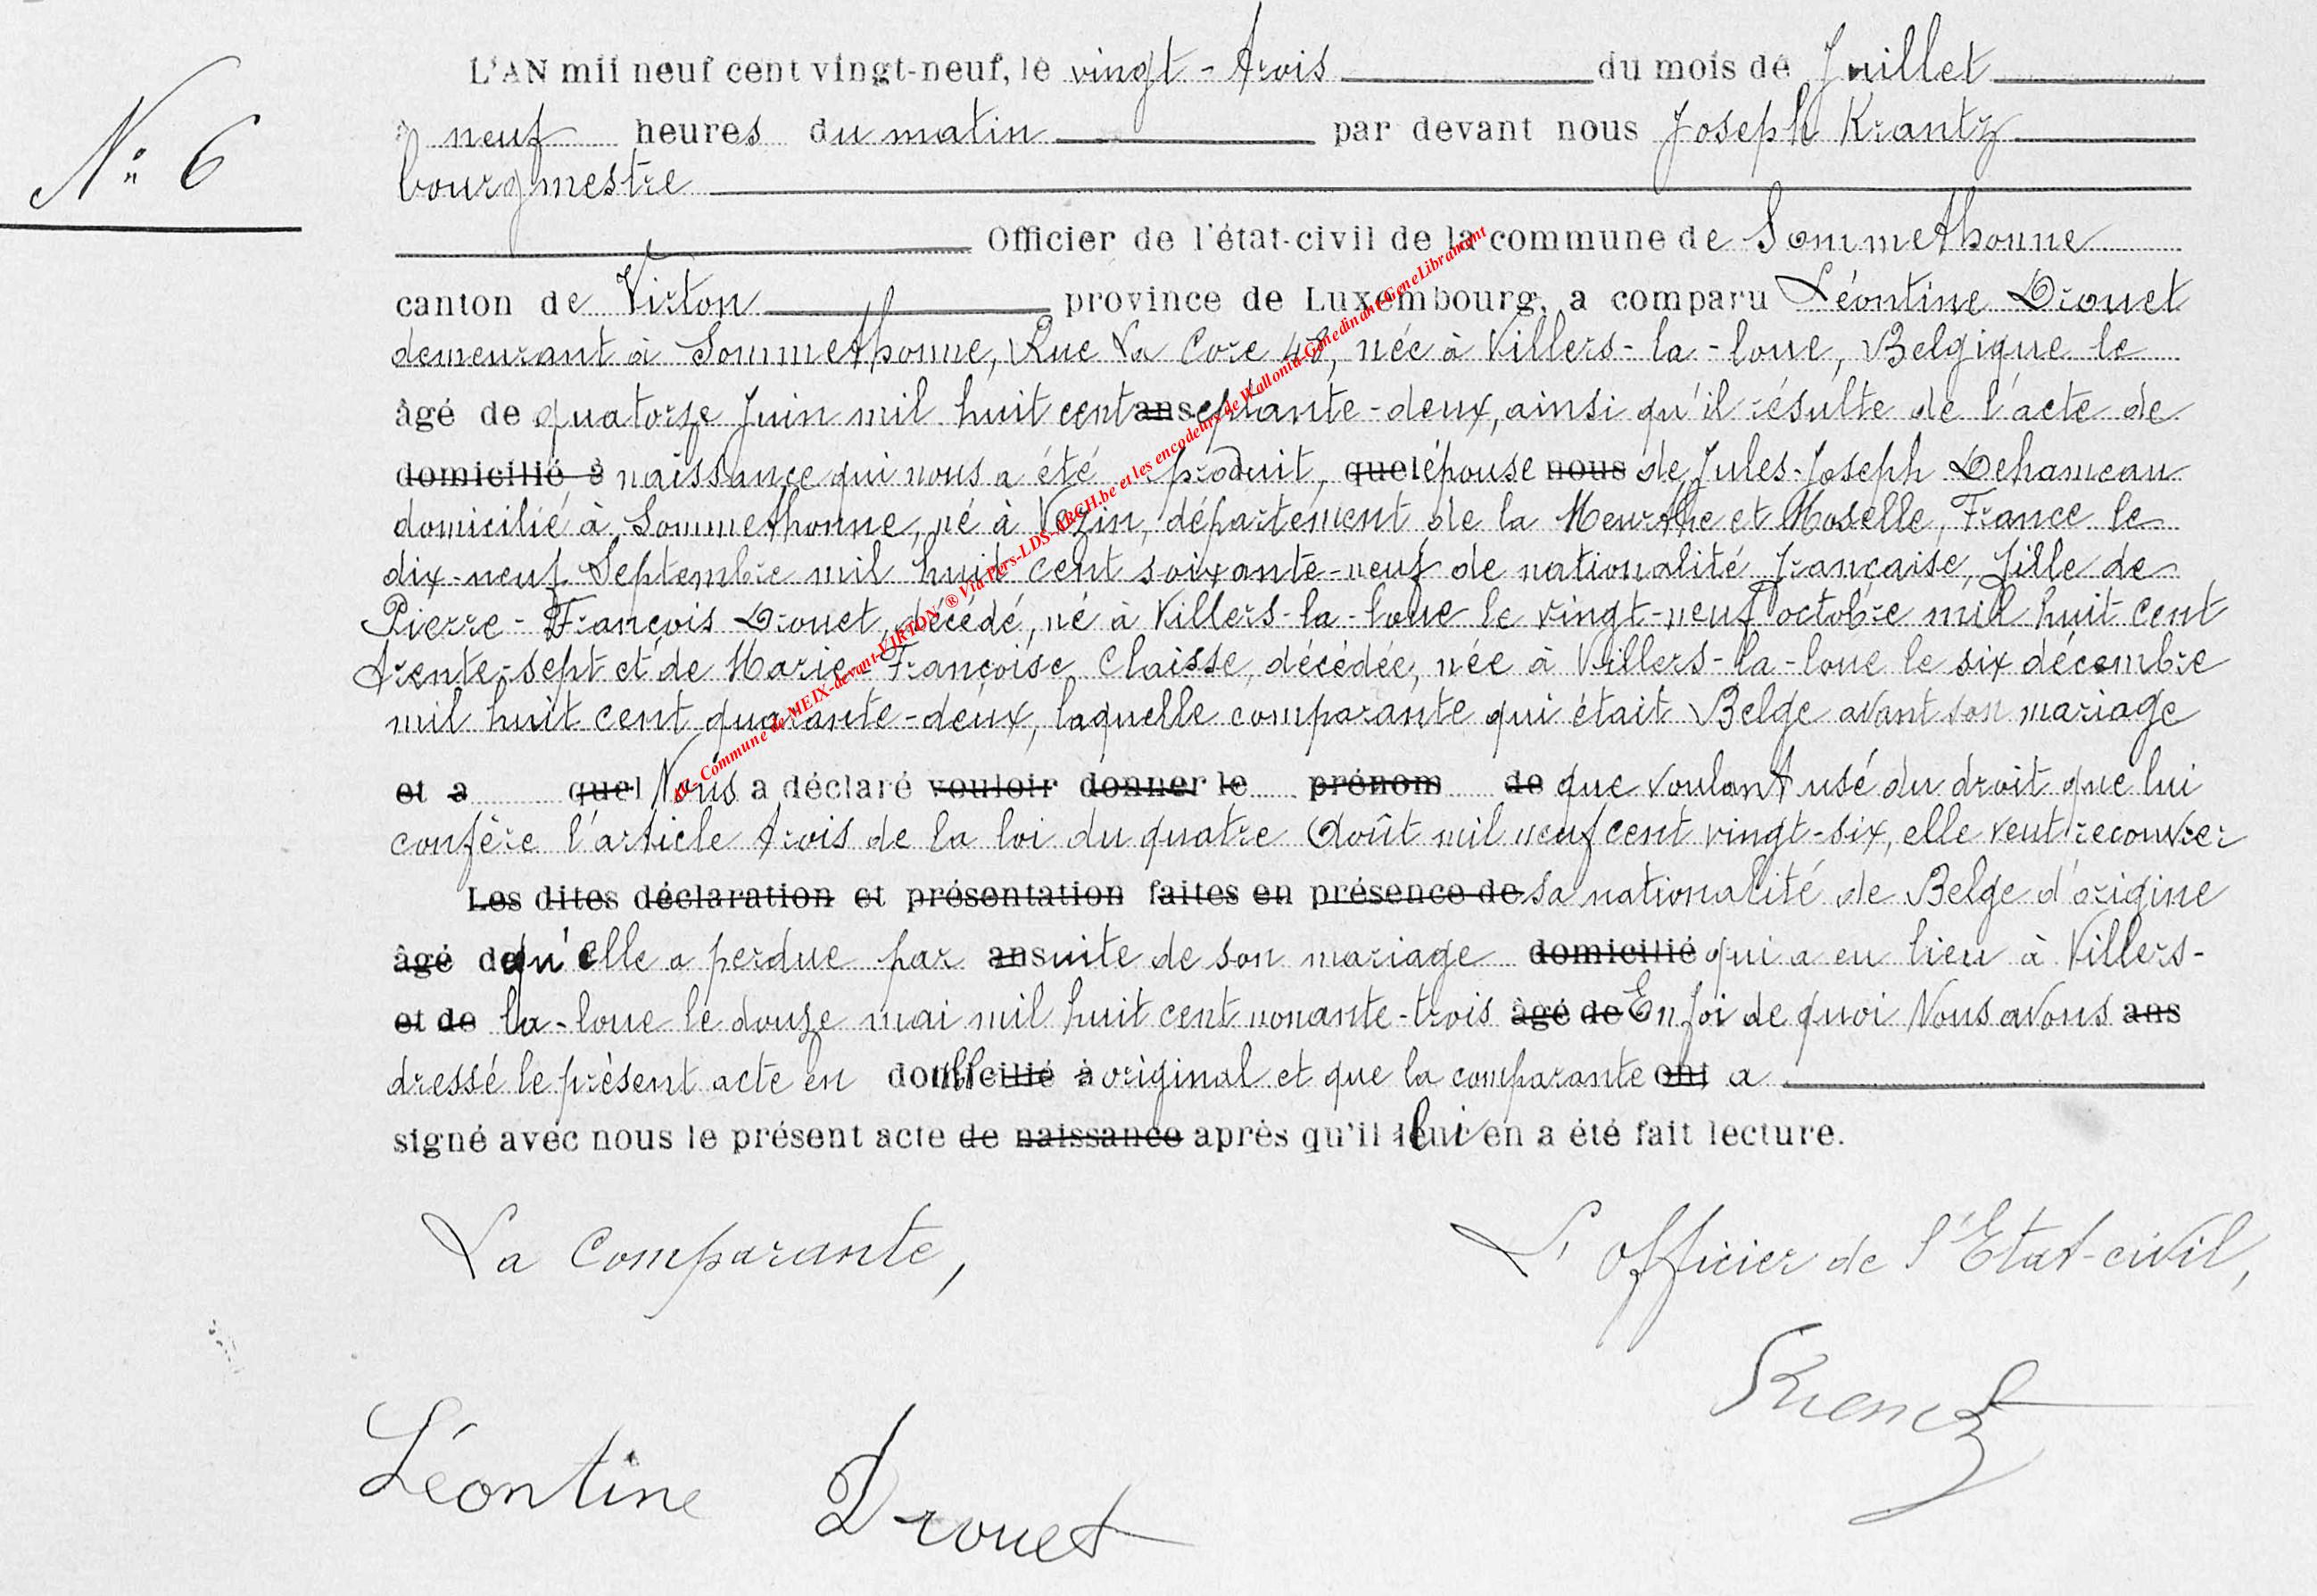 L'AN mil neuf cent vingt-neuf, le vingt-trois du mois de Juillet
à neuf heures du matin par devant nous Joseph Krantz
N° 6
bourgmestre
Officier de l'état-civil de la commune de Sommethonne
canton de Virton province de Luxembourg, a comparu Léontine Drouet
demeurant à Sommethonne, Rue La Core 48, née à Villers-la-loue, Belgique le
âgé de quatorze Juin mil huit cent ans septante-deux, ainsi qu'il résulte de l'acte de
domicilié à naissance qui nous a été produit, quel épouse nous de Jules-Joseph Dehameau
domicilié à Sommethonne, né à Vezin, département de la Meurthe et Moselle, France le
dix-neuf Septembre mil huit cent soixante-neuf de nationalité française, fille de
Pierre-François Drouet, décédé, né à Villers-la-loue le vingt-neuf octobre mil huit cent
trente-sept et de Marie-Françoise Claisse, décédée, née à Villers-la-loue le six décembre
mil huit cent quarante-deux, laquelle comparante qui était Belge avant son mariage
et a quel Nous a déclaré vouloir donner le prénom de que voulant usé du droit que lui
confère l'article trois de la loi du quatre Août mil neuf cent vingt-six, elle veut recouvrer
Les dites déclaration et présentation faites en présence de sa nationalité de Belge d'origine
âgé de qu'elle a perdue par ans suite de son mariage domicilié qui a eu lieu à Villers-
et de la-loue le douze mai mil huit cent nonante-trois âgé de En foi de quoi Nous avons ans
dressé le présent acte en double domicilié à original et que la comparante ont a
signé avec nous le présent acte de naissance après qu'il lui en a été fait lecture.
La Comparante, L'officier de l'Etat-civil,
Krantz
Léontine Drouet
AC- Commune de MEIX-devant-VIRTON ® Via Pers-LDS-ARCH.be et les encodeurs de Wallonia-Genedinant-GeneLibramont